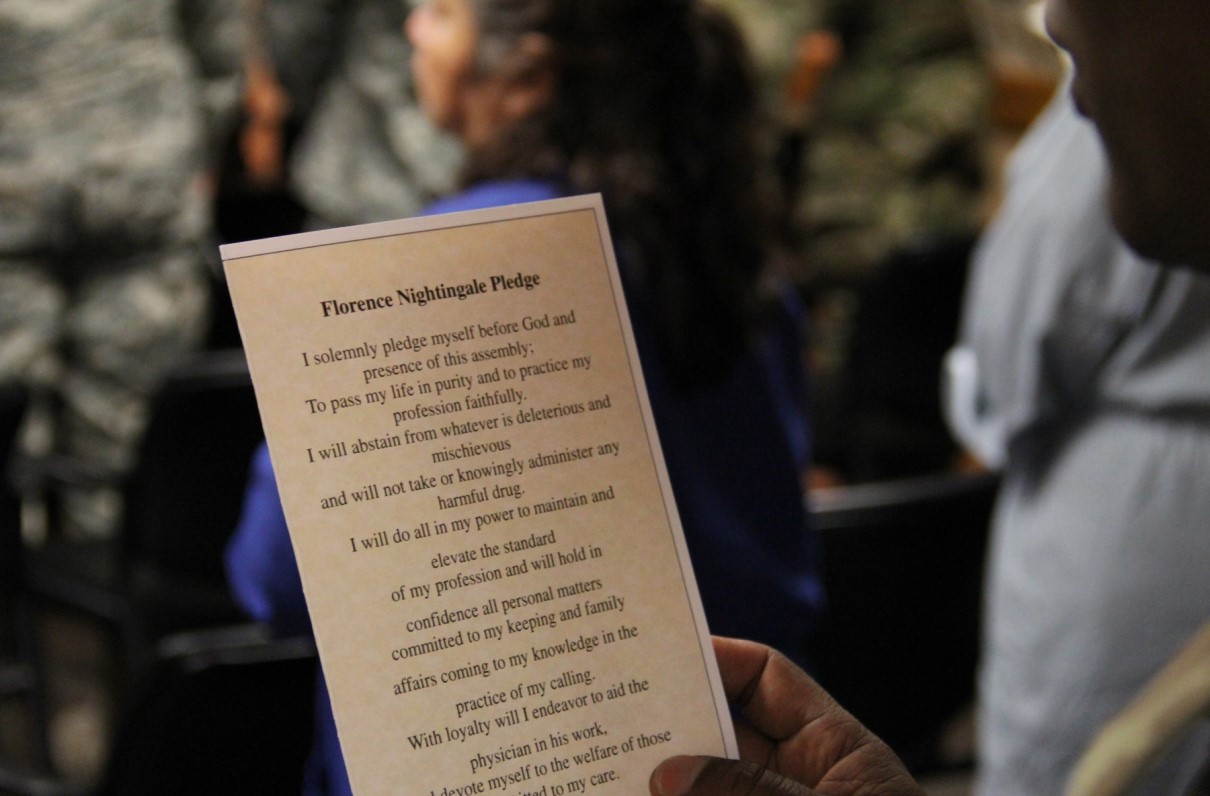 Florence Nightingale Pledge
I solemnly pledge myself before God and
presence of this assembly;
To pass my life in purity and to practice my
profession faithfully.
I will abstain from whatever is deleterious and
mischievous
and will not take or knowingly administer any
harmful drug.
I will do all in my power to maintain and
elevate the standard
of my profession and will hold in
confidence all personal matters
committed to my keeping and family
affairs coming to my knowledge in the
practice of my calling.
With loyalty will I endeavor to aid the
physician in his work,
devote myself to the welfare of those
to my care.